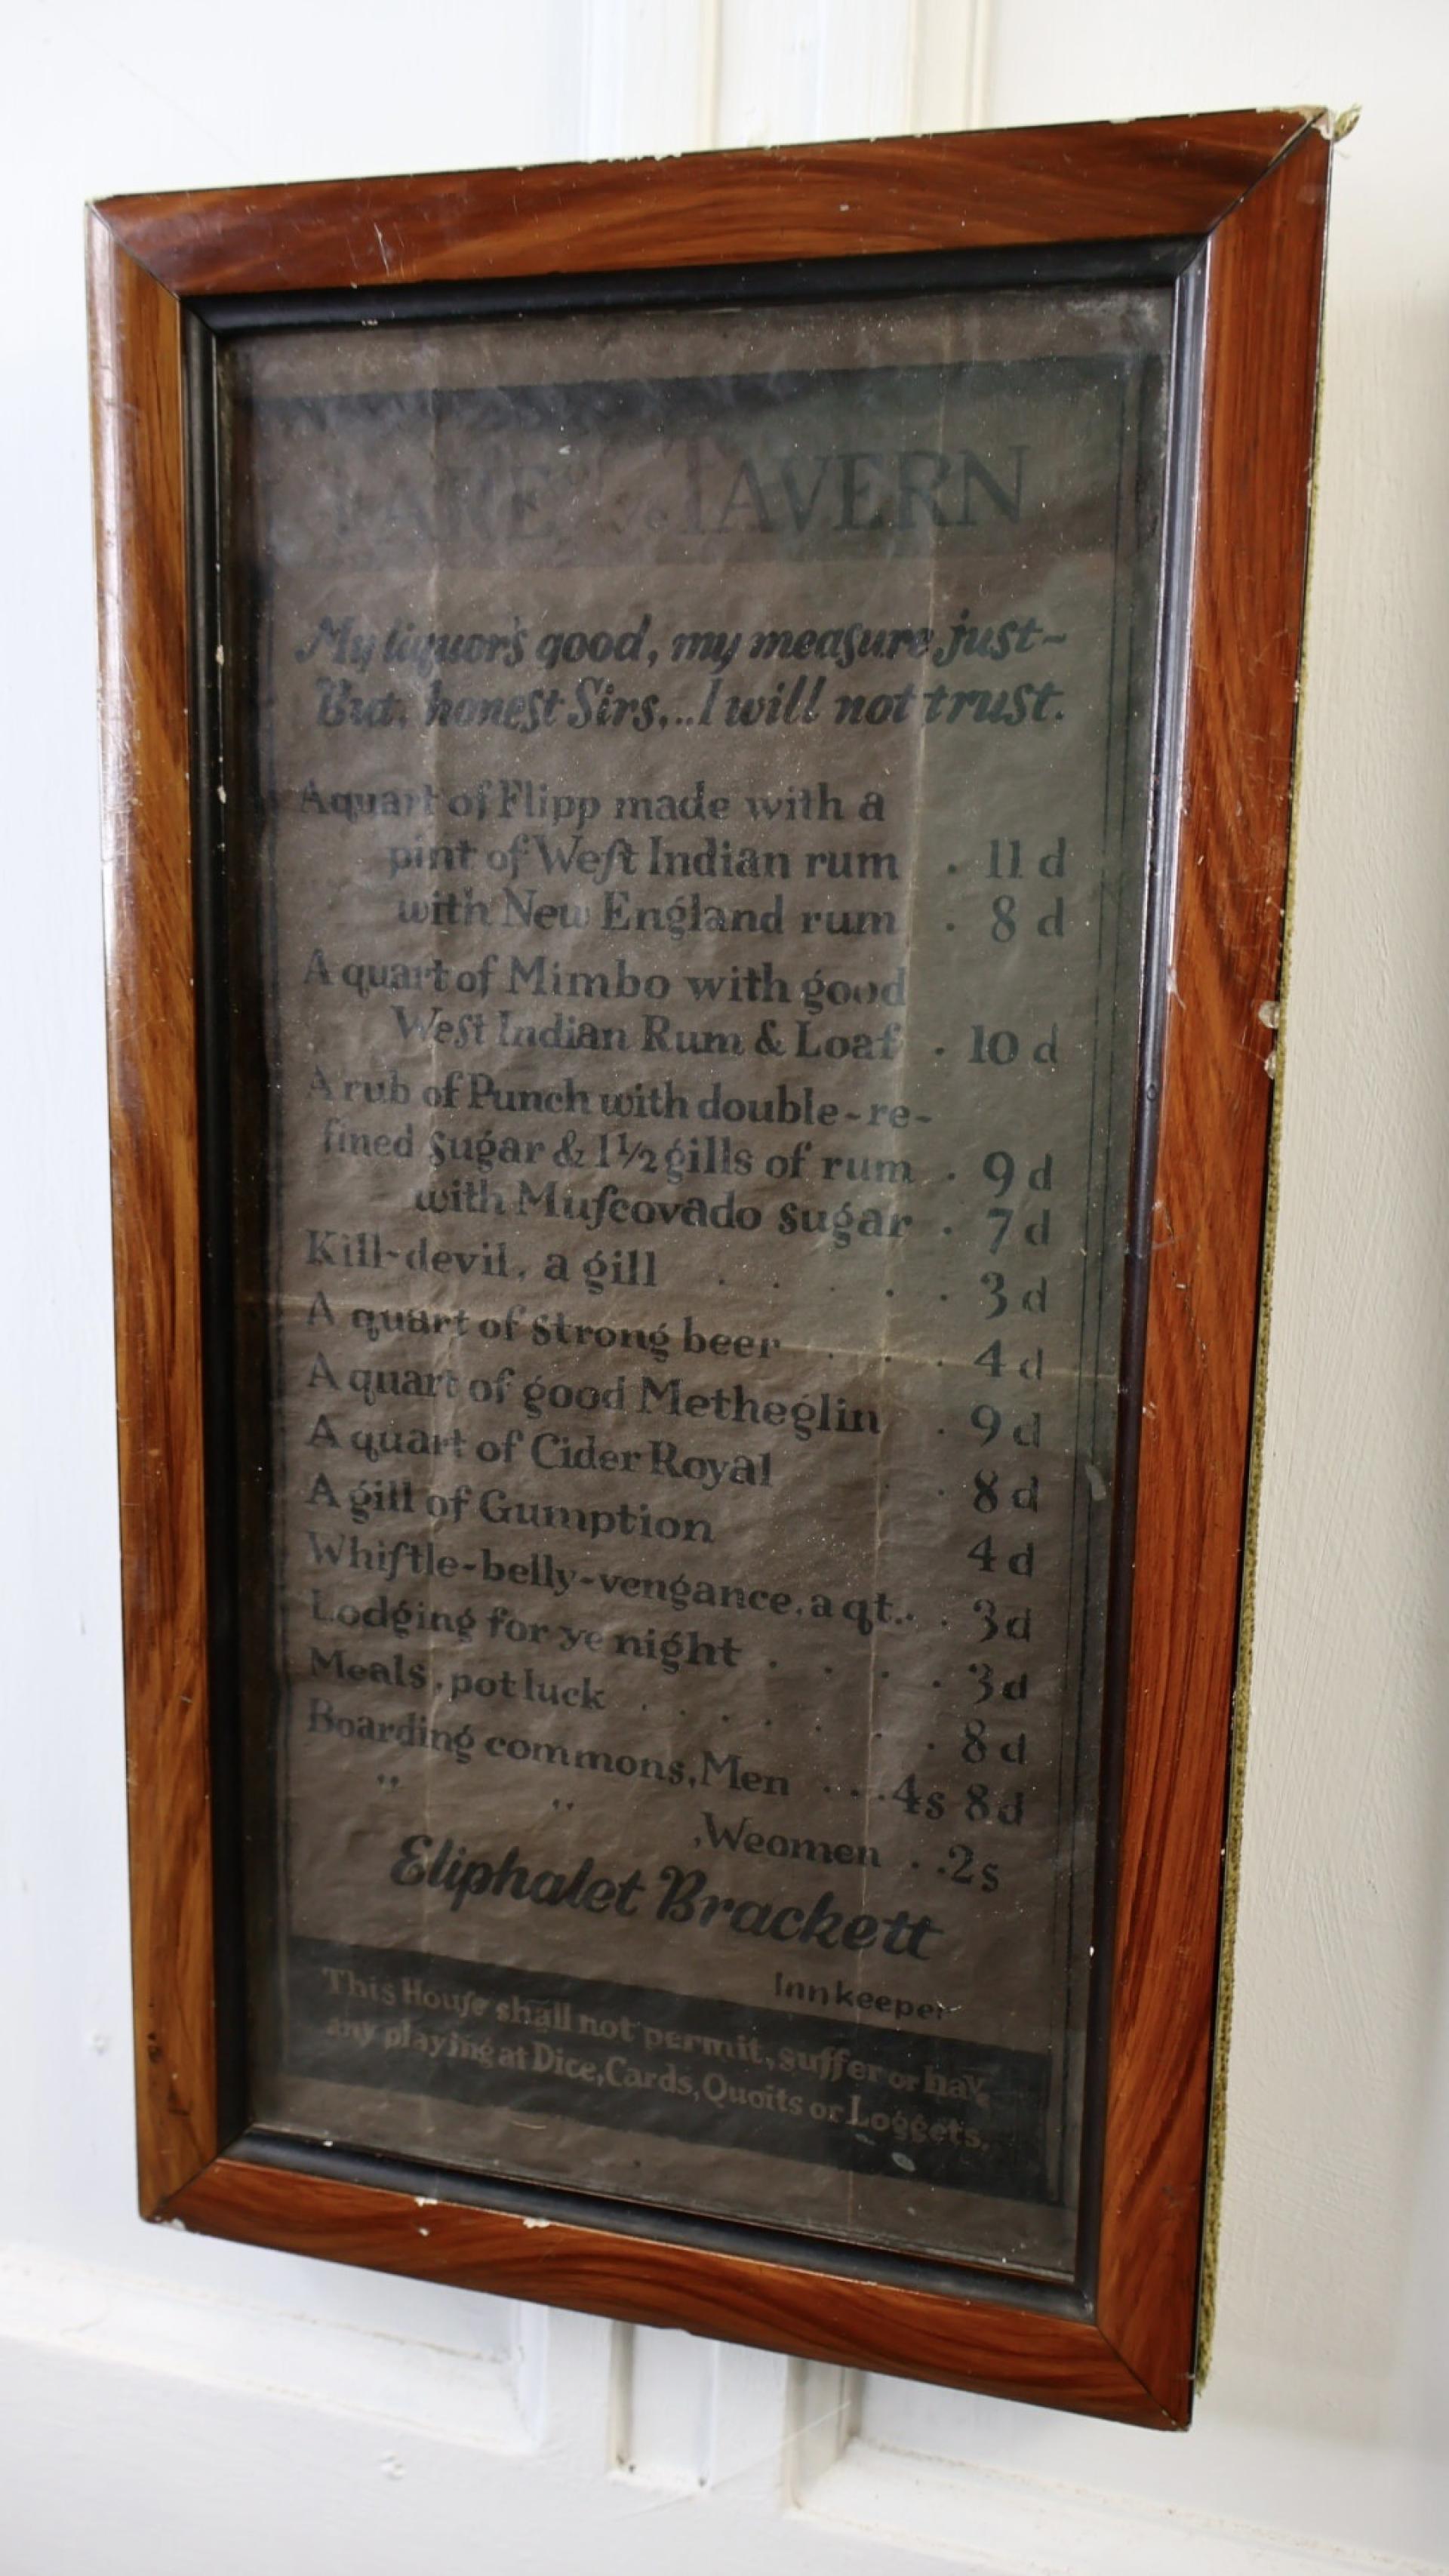 TAVERN
My liquor's good, my meaſure just~
But, honest Sirs,..I will not trust.
A quart of Flipp made with a
pint of Weſt Indian rum . 11 d
with New England rum . 8 d
A quart of Mimbo with good
Weſt Indian Rum & Loaf . 10 d
A rub of Punch with double-re-
fined sugar & 1½ gills of rum . 9 d
with Muſcovado sugar . 7 d
Kill-devil, a gill . . . . . 3 d
A quart of strong beer . . . 4 d
A quart of good Metheglin . 9 d
A quart of Cider Royal . . 8 d
A gill of Gumption 4 d
Whiſtle-belly-vengance, a qt.. . 3d
Lodging for ye night . . . . 3d
Meals, pot luck . . . . . . 8 d
Boarding commons, Men . . .4s 8d
" " , Weomen . .2s
Eliphalet Brackett
Innkeeper
This Houſe shall not permit, suffer or have
any playing at Dice, Cards, Quoits or Loggets.